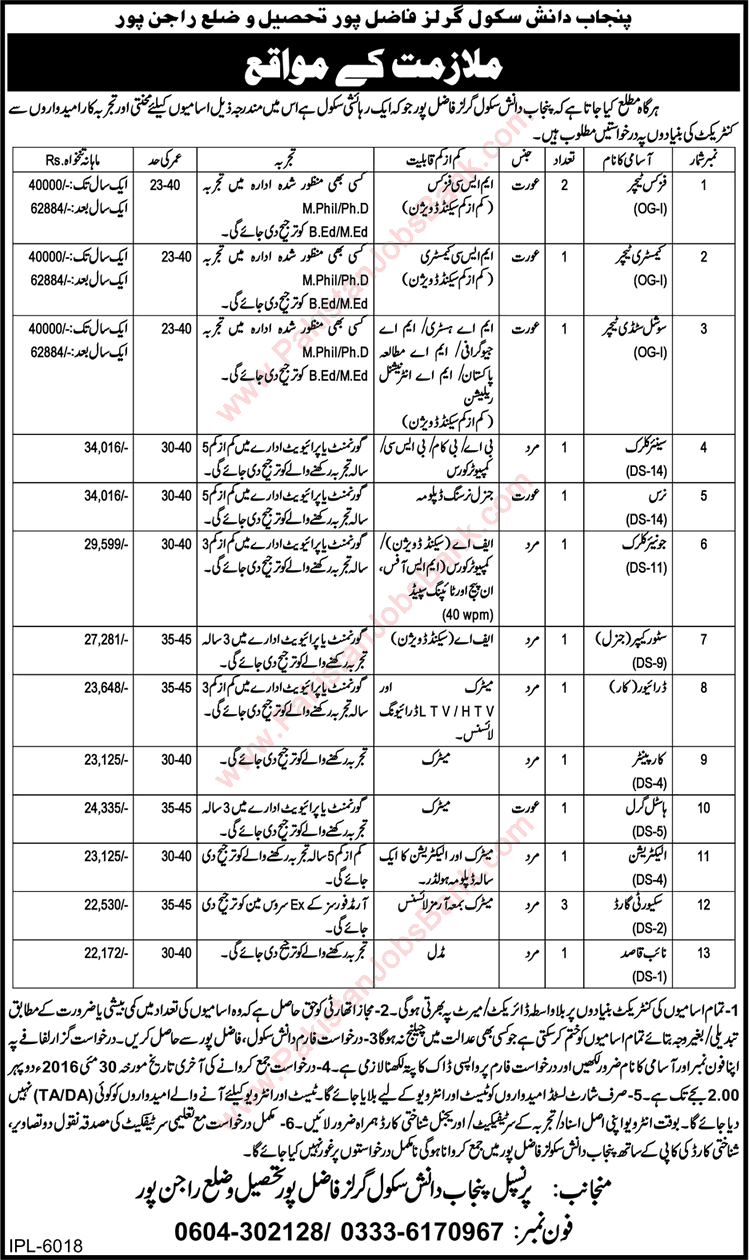 پنجاب دانش سکول گرلز فاضل پور تحصیل و ضلع راجن پور
ملازمت کے مواقع
ہرگاہ مطلع کیا جاتا ہے کہ پنجاب دانش سکول گرلز فاضل پور جو کہ ایک رہائشی سکول ہے اس میں مندرجہ ذیل اسامیوں کیلئے محنتی اور تجربہ کار امیدواروں سے
کنٹریکٹ کی بنیادوں پہ درخواستیں مطلوب ہیں۔
نمبر شمار آسامی کا نام تعداد جنس کم از کم قابلیت تجربہ عمر کی حد ماہانہ تنخواہ Rs.
1 فزکس ٹیچر 2 عورت ایم ایس سی فزکس کسی بھی منظور شدہ ادارہ میں تجربہ 23-40 ایک سال تک:-/40000
(OG-I) (کم از کم سیکنڈ ڈویژن) M.Phil/Ph.D ایک سال بعد:-/62884
B.Ed/M.Ed کو ترجیح دی جائے گی۔
2 کیمسٹری ٹیچر 1 عورت ایم ایس سی کیمسٹری کسی بھی منظور شدہ ادارہ میں تجربہ 23-40 ایک سال تک:-/40000
(OG-I) (کم از کم سیکنڈ ڈویژن) M.Phil/Ph.D ایک سال بعد:-/62884
B.Ed/M.Ed کو ترجیح دی جائے گی۔
3 سوشل سٹڈی ٹیچر 1 عورت ایم اے ہسٹری/ ایم اے کسی بھی منظور شدہ ادارہ میں تجربہ 23-40 ایک سال تک:-/40000
(OG-I) جیوگرافی/ ایم اے مطالعہ M.Phil/Ph.D ایک سال بعد:-/62884
پاکستان/ ایم اے انٹرنیشنل B.Ed/M.Ed کو ترجیح دی جائے گی۔
ریلیشن
(کم از کم سیکنڈ ڈویژن)
4 سینئر کلرک 1 مرد بی اے/ بی کام/ بی ایس سی/ گورنمنٹ یا پرائیویٹ ادارے میں کم از کم 5 30-40 34,016/-
(DS-14) کمپیوٹر کورس سالہ تجربہ رکھنے والے کو ترجیح دی جائے گی۔
5 نرس 1 عورت جنرل نرسنگ ڈپلومہ گورنمنٹ یا پرائیویٹ ادارے میں کم از کم 5 30-40 34,016/-
(DS-14) سالہ تجربہ رکھنے والے کو ترجیح دی جائے گی۔
6 جونیئر کلرک 1 مرد ایف اے (سیکنڈ ڈویژن)/ گورنمنٹ یا پرائیویٹ ادارے میں کم از کم 3 30-40 29,599/-
(DS-11) کمپیوٹر کورس (ایم ایس آفس، سالہ تجربہ رکھنے والے کو ترجیح دی جائے گی۔
ان پیج اور ٹائپنگ سپیڈ
(40 wpm)
7 سٹور کیپر (جنرل) 1 مرد ایف اے (سیکنڈ ڈویژن) گورنمنٹ یا پرائیویٹ ادارے میں 3 سالہ 35-45 27,281/-
(DS-9) تجربہ رکھنے والے کو ترجیح دی جائے گی۔
8 ڈرائیور (کار) 1 مرد میٹرک اور گورنمنٹ یا پرائیویٹ ادارے میں کم از کم 3 35-45 23,648/-
LTV/HTV ڈرائیونگ سالہ تجربہ رکھنے والے کو ترجیح دی جائے گی۔
لائسنس۔
9 کارپینٹر 1 مرد میٹرک تجربہ رکھنے والے کو ترجیح دی جائے گی۔ 30-40 23,125/-
(DS-4)
10 ہاسٹل گرل 1 عورت میٹرک گورنمنٹ یا پرائیویٹ ادارے میں 3 سالہ 35-45 24,335/-
(DS-5) تجربہ رکھنے والے کو ترجیح دی جائے گی۔
11 الیکٹریشن 1 مرد میٹرک اور الیکٹریشن کا ایک کم از کم 5 سالہ تجربہ رکھنے والے کو ترجیح دی 30-40 23,125/-
(DS-4) سالہ ڈپلومہ ہولڈر۔ جائے گی۔
12 سکیورٹی گارڈ 3 مرد میٹرک بمعہ آرمز لائسنس آرمڈ فورسز کے Ex سروس مین کو ترجیح دی 35-45 22,530/-
(DS-2) جائے گی۔
13 نائب قاصد 1 مرد مڈل تجربہ رکھنے والے کو ترجیح دی جائے گی۔ 30-40 22,172/-
(DS-1)
1- تمام اسامیوں کی کنٹریکٹ بنیادوں پر بلاواسطہ ڈائریکٹ/ میرٹ پہ بھرتی ہوگی۔ 2- مجاز اتھارٹی کو حق حاصل ہے کہ وہ اسامیوں کی تعداد میں کمی بیشی یا ضرورت کے مطابق
تبدیلی/ بغیر وجہ بتائے تمام اسامیوں کو ختم کر سکتی ہے جو کسی بھی عدالت میں چیلنج نہ ہوگا 3- درخواست فارم دانش سکول، فاضل پور سے حاصل کریں۔ درخواست گزار لفافے پہ
اپنا فون نمبر اور آسامی کا نام ضرور لکھیں اور درخواست فارم پر واپسی ڈاک کا پتہ لکھنا لازمی ہے۔ 4- درخواست جمع کروانے کی آخری تاریخ مورخہ 30 مئی 2016ء دوپہر
2.00 بجے تک ہے۔ 5- صرف شارٹ لسٹڈ امیدواروں کو ٹیسٹ اور انٹرویو کے لیے بلایا جائے گا۔ ٹیسٹ اور انٹرویو کیلئے آنے والے امیدواروں کو کوئی (TA/DA) نہیں
دیا جائے گا۔ بوقت انٹرویو اپنی اصل اسناد/ تجربہ کے سرٹیفکیٹ/ اوریجنل شناختی کارڈ ہمراہ ضرور لائیں۔ 6- مکمل درخواست مع تعلیمی سرٹیفکیٹ کی مصدقہ نقول دو تصاویر،
شناختی کارڈ کی کاپی کے ساتھ پنجاب دانش سکول گرلز فاضل پور میں جمع کروانا ہوگی نامکمل درخواستوں پر غور نہیں کیا جائے گا۔
منجانب: پرنسپل پنجاب دانش سکول گرلز فاضل پور تحصیل و ضلع راجن پور
فون نمبر: 0333-6170967 /0604-302128
IPL-6018
www.PakistanJobsBank.com
www.PakistanJobsBank.com
www.PakistanJobsBank.com